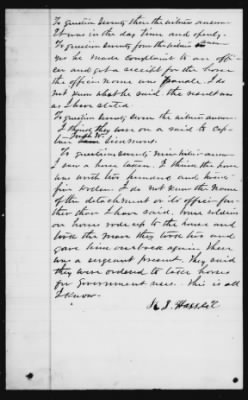 To question Seventy three the witness answers
It was in the day time and openly.
To question Seventy four the witness answers
Yes he made complaint to an offi-
cer and got a receipt for the horse
the officers name was I do
not know what he said. the result was
as I have stated.
To question Seventy seven the witness answers
I think they were on a raid to cap-
ture
To question Seventy nine witness answers
I saw a horse taken. I think the horse
was worth two hundred and twenty
five dollars. I do not know the name
of the detachment or its officer fur-
ther than I have said. Some soldiers
on horse rode up to the house and
took the mare they took his and
gave him one back again. There
was a sergeant present. They said
they were ordered to take horses
for government uses. This is all
I know.